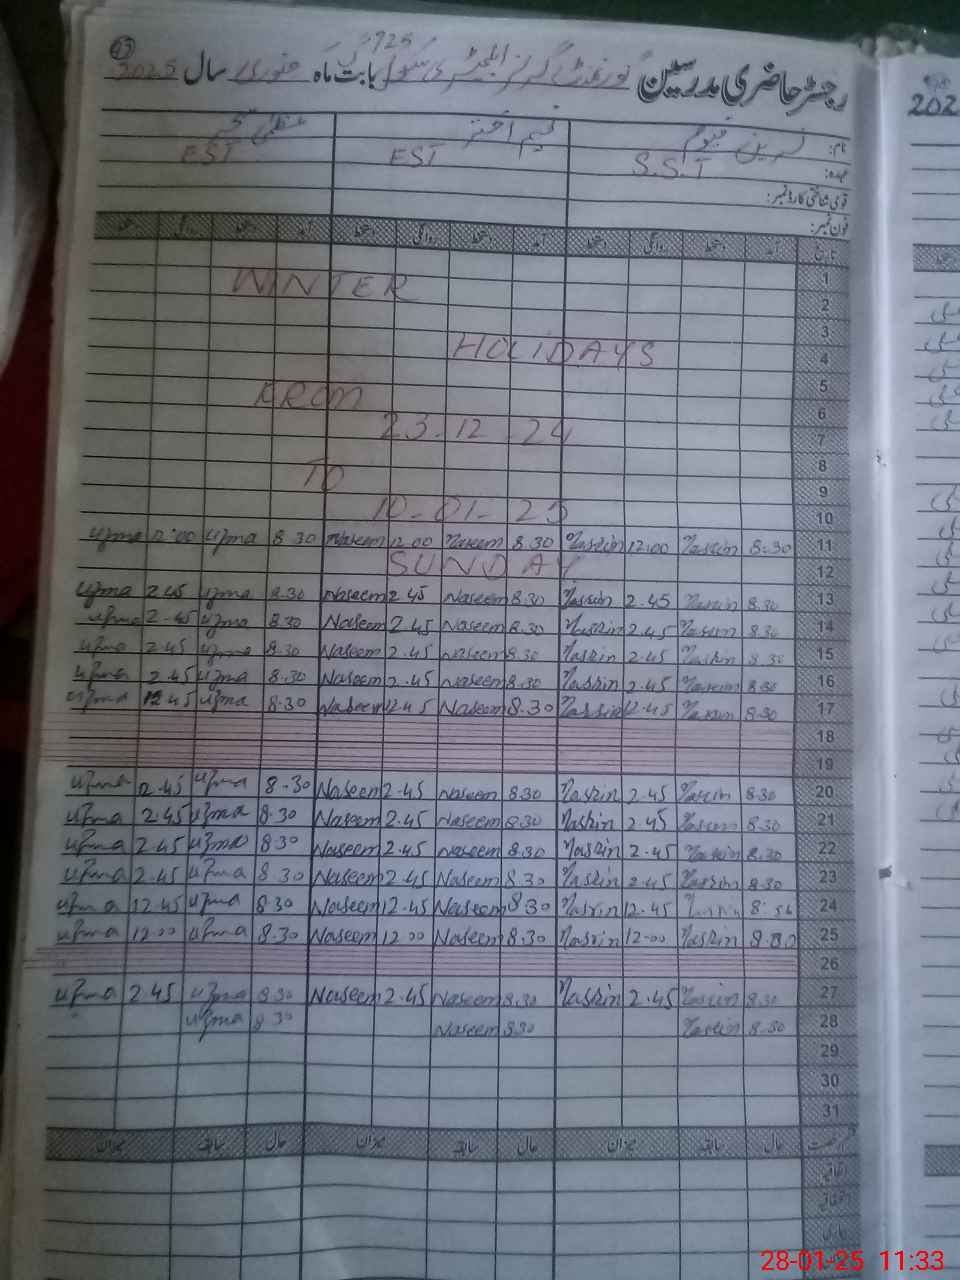 رجسٹر حاضری مدرسین گورنمنٹ گرلز ایلیمنٹری سکول بابت ماہ جنوری سال 2025
نام: نسرین قیوم نسیم اختر عظمیٰ
عہدہ: S.S.T EST EST
قومی شناختی کارڈ نمبر:
فون نمبر:
تاریخ آمد دستخط روانگی دستخط آمد دستخط روانگی دستخط آمد دستخط روانگی دستخط
1
WINTER
2
3
HOLIDAYS 4
5
FROM 6
23-12-24 7
8
TO 9
10-01-25 10
uzma 12:00 uzma 8.30 Naseem 12.00 Naseem 8.30 Nasrin 12.00 Nasrin 8.30 11
SUNDAY 12
uzma 2.45 uzma 8.30 Naseem 2.45 Naseem 8.30 Nasrin 2.45 Nasrin 8.30 13
uzma 2.45 uzma 8.30 Naseem 2.45 Naseem 8.30 Nasrin 2.45 Nasrin 8.30 14
uzma 2.45 uzma 8.30 Naseem 2.45 Naseem 8.30 Nasrin 2.45 Nasrin 8.30 15
uzma 2.45 uzma 8.30 Naseem 2.45 Naseem 8.30 Nasrin 2.45 Nasrin 8.30 16
uzma 12.45 uzma 8.30 Naseem 12.45 Naseem 8.30 Nasrin 12.45 Nasrin 8.30 17
18
19
uzma 2.45 uzma 8.30 Naseem 2.45 Naseem 8.30 Nasrin 2.45 Nasrin 8.30 20
uzma 2.45 uzma 8.30 Naseem 2.45 Naseem 8.30 Nasrin 2.45 Nasrin 8.30 21
uzma 2.45 uzma 8.30 Naseem 2.45 Naseem 8.30 Nasrin 2.45 Nasrin 8.30 22
uzma 2.45 uzma 8.30 Naseem 2.45 Naseem 8.30 Nasrin 2.45 Nasrin 8.30 23
uzma 12.45 uzma 8.30 Naseem 12.45 Naseem 8.30 Nasrin 12.45 Nasrin 24
uzma 12.00 uzma 8.30 Naseem 12.00 Naseem 8.30 Nasrin 12.00 Nasrin 8.30 25
26
uzma 2.45 uzma 8.30 Naseem 2.45 Naseem 8.30 Nasrin 2.45 Nasrin 8.30 27
uzma 8.30 Naseem 8.30 Nasrin 8.30 28
29
30
31
حال سابقہ میزان حال سابقہ میزان حال سابقہ میزان
اتفاقیہ
28-01-25 11:33